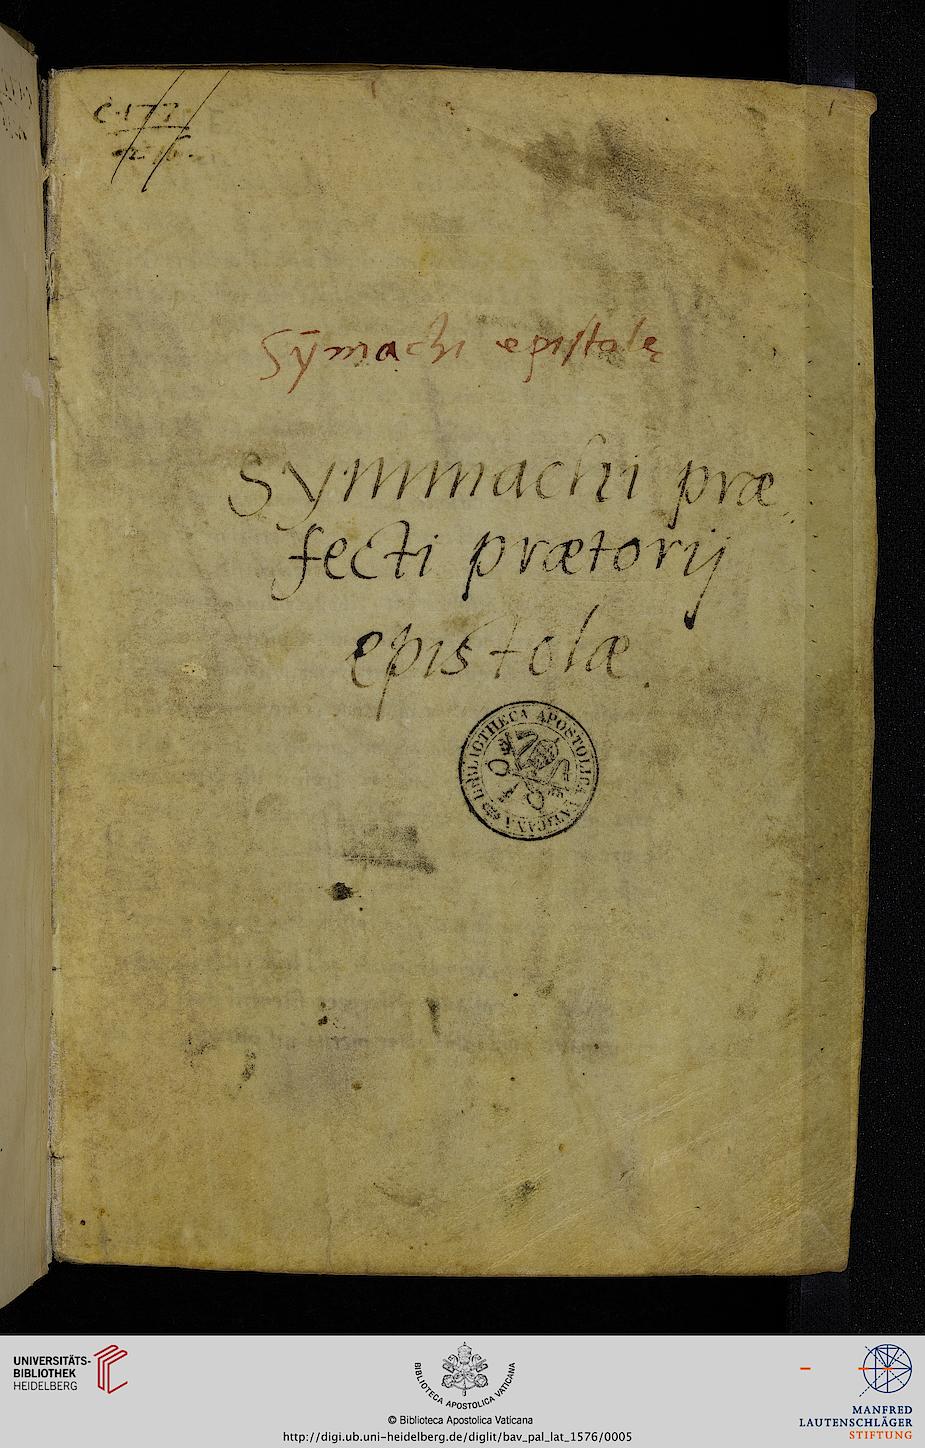 C. 177
1
Sȳmachi epistolę
Symmachi præ
fecti prætorij
epistolæ.
BIBLIOTHECA APOSTOLICA VATICANA
UNIVERSITÄTS-
BIBLIOTHEK
HEIDELBERG
BIBLIOTECA APOSTOLICA VATICANA
© Biblioteca Apostolica Vaticana
http://digi.ub.uni-heidelberg.de/diglit/bav_pal_lat_1576/0005
MANFRED
LAUTENSCHLÄGER
STIFTUNG